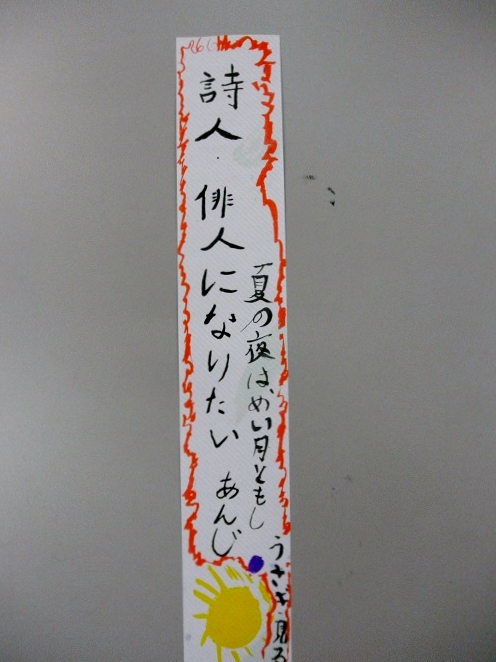 夏の夜は、めい月ともし
うさぎ見る
詩人・俳人になりたい あんじ